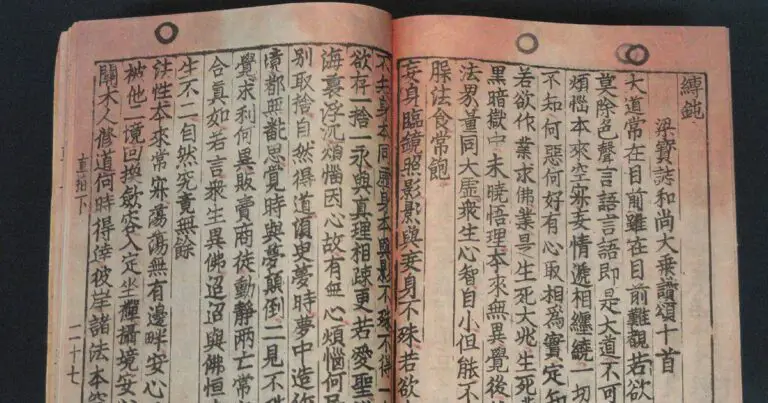 縛鈍
梁寶誌和尚大乗讃頌十首
大道常在目前雖在目前難覩若欲
莫除色聲言語言語即是大道不可
煩惱本來空寂妄情遞相纏繞一切
不知何惡何好有心取相爲實定知
若欲作業求佛業是生死大兆生死
黒暗獄中未曉悟理本來無異覺後
法界量同大虚衆生心智自小但能不
臊法食常飽
妄身臨鏡照影影與妄身不殊若欲
身本同虛身本與影不殊不得一
欲存一捨一永與真理相疎更若愛聖
海裏浮沉煩惱因心故有無心煩惱何
別取捨自然得道須臾夢時夢中造作
境都無飜思覺時與夢顚倒二見不殊
覺求利何異販賣商徒動靜兩亡常
合真如若言衆生異佛迢迢與佛恒
生不二自然究竟無餘
法性本來常寂蕩蕩無有邊畔安心
被他二境回換歛容入定坐禪攝境安
木人修道何時得達彼岸諸法本空
直指下
二十七